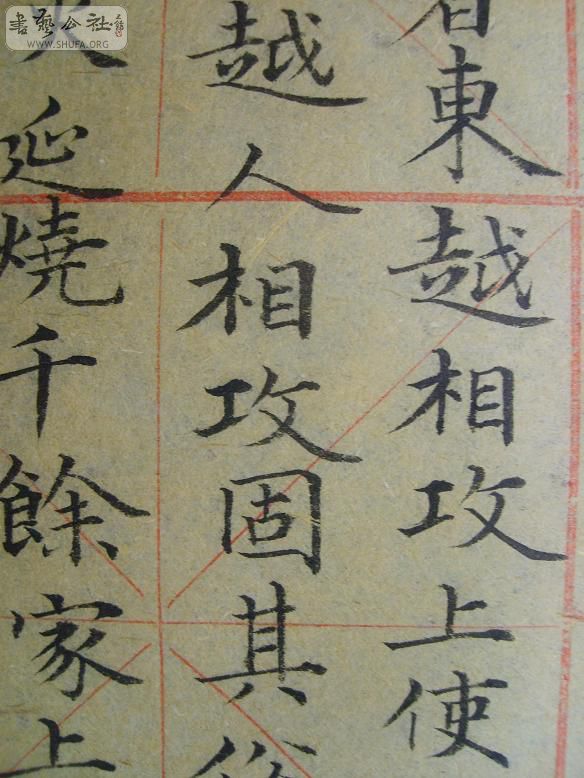 東越相攻上使
越人相攻固其
延燒千餘家上
書藝公社
WWW.SHUFA.ORG